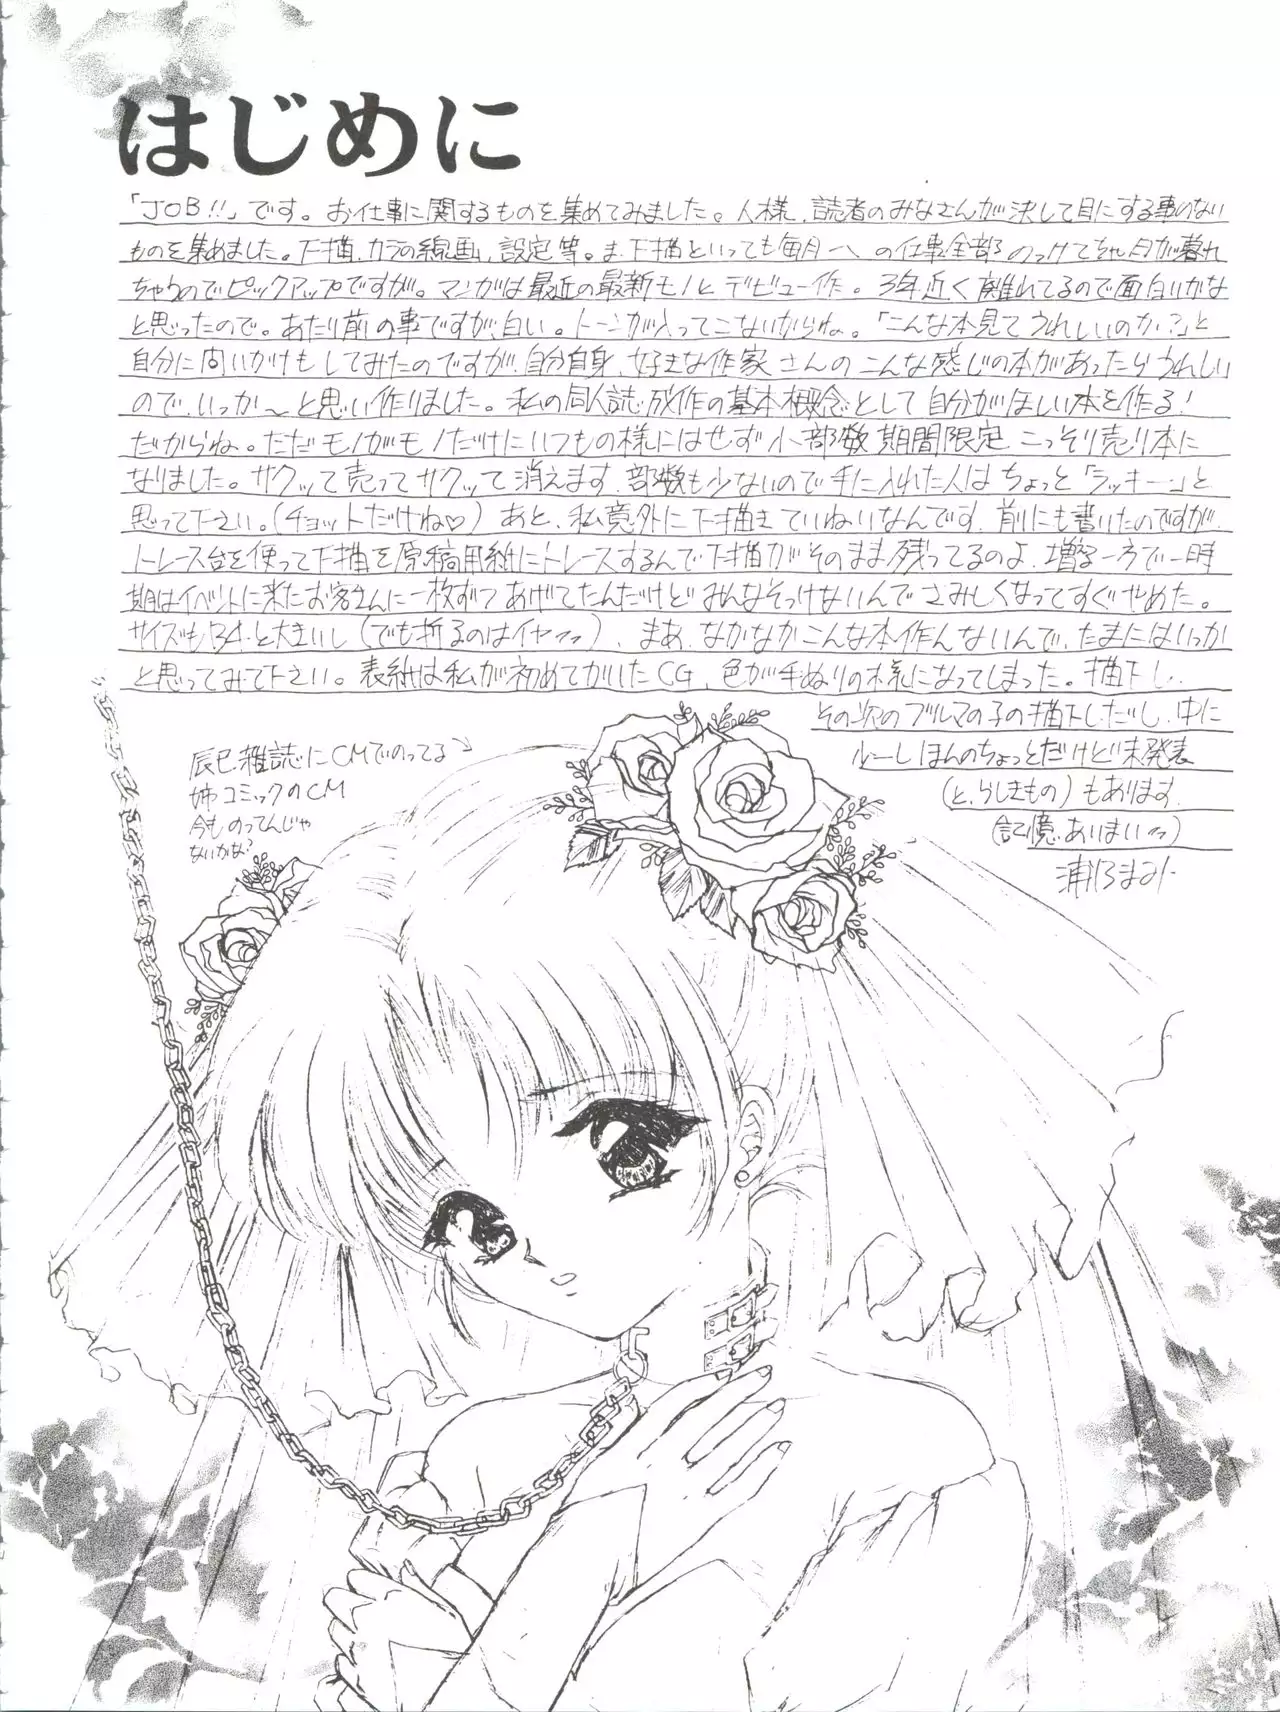 はじめに
「JOB!!」です。お仕事に関するものを集めてみました。人様、読者のみなさんが決して目にする事のない
ものを集めました。下描、カラの線画、設定等。ま、下描といっても毎月〜の仕事全部のっけてちゃ月が暮れ
ちゃうのでピックアップですが。マンガは最近の最新モノとデビュー作。3年近く離れてるので面白いかな
と思ったので。あたり前の事ですが、白い。トーンが入ってこないからね。「こんな本見てうれしいのか?」と
自分に問いかけもしてみたのですが、自分自身、好きな作家さんのこんな感じの本があったらうれしい
ので、いっか〜と思い作りました。私の同人誌成作の基本概念として自分がほしい本を作る!
だからね。ただモノがモノだけにいつもの様にはせず小部数期間限定、こっそり売り本に
なりました。サクッて売ってサクッて消えます、部数も少ないので手に入れた人はちょっと「ラッキー」と
思って下さい。(チョットだけね♡)あと、私意外に下描きていねいなんです、前にも書いたのですが、
トレース台を使って下描を原稿用紙にトレースするんで下描がそのまま残ってるのよ、増る一方で一時
期はイベントに来たお客さんに一枚ずつあげてたんだけどみんなそっけないんでさみしくなってすぐやめた。
サイズもB4と大きいし(でも折るのはイヤ〜)、まあ、なかなかこんな本作んないんで、たまにはいっか
と思ってみて下さい。表紙は私が初めてかいたCG、色が手ぬりの様になってしまった。描下し、
その次のブルマの子の描下しだし、中に
もほんのちょっとだけど未発表
(と、らしきもの)もあります、
(記憶あいまい〜)
辰巳雑誌にCMでのってる
姉コミックのCM
今ものってんじゃ
ないかな?